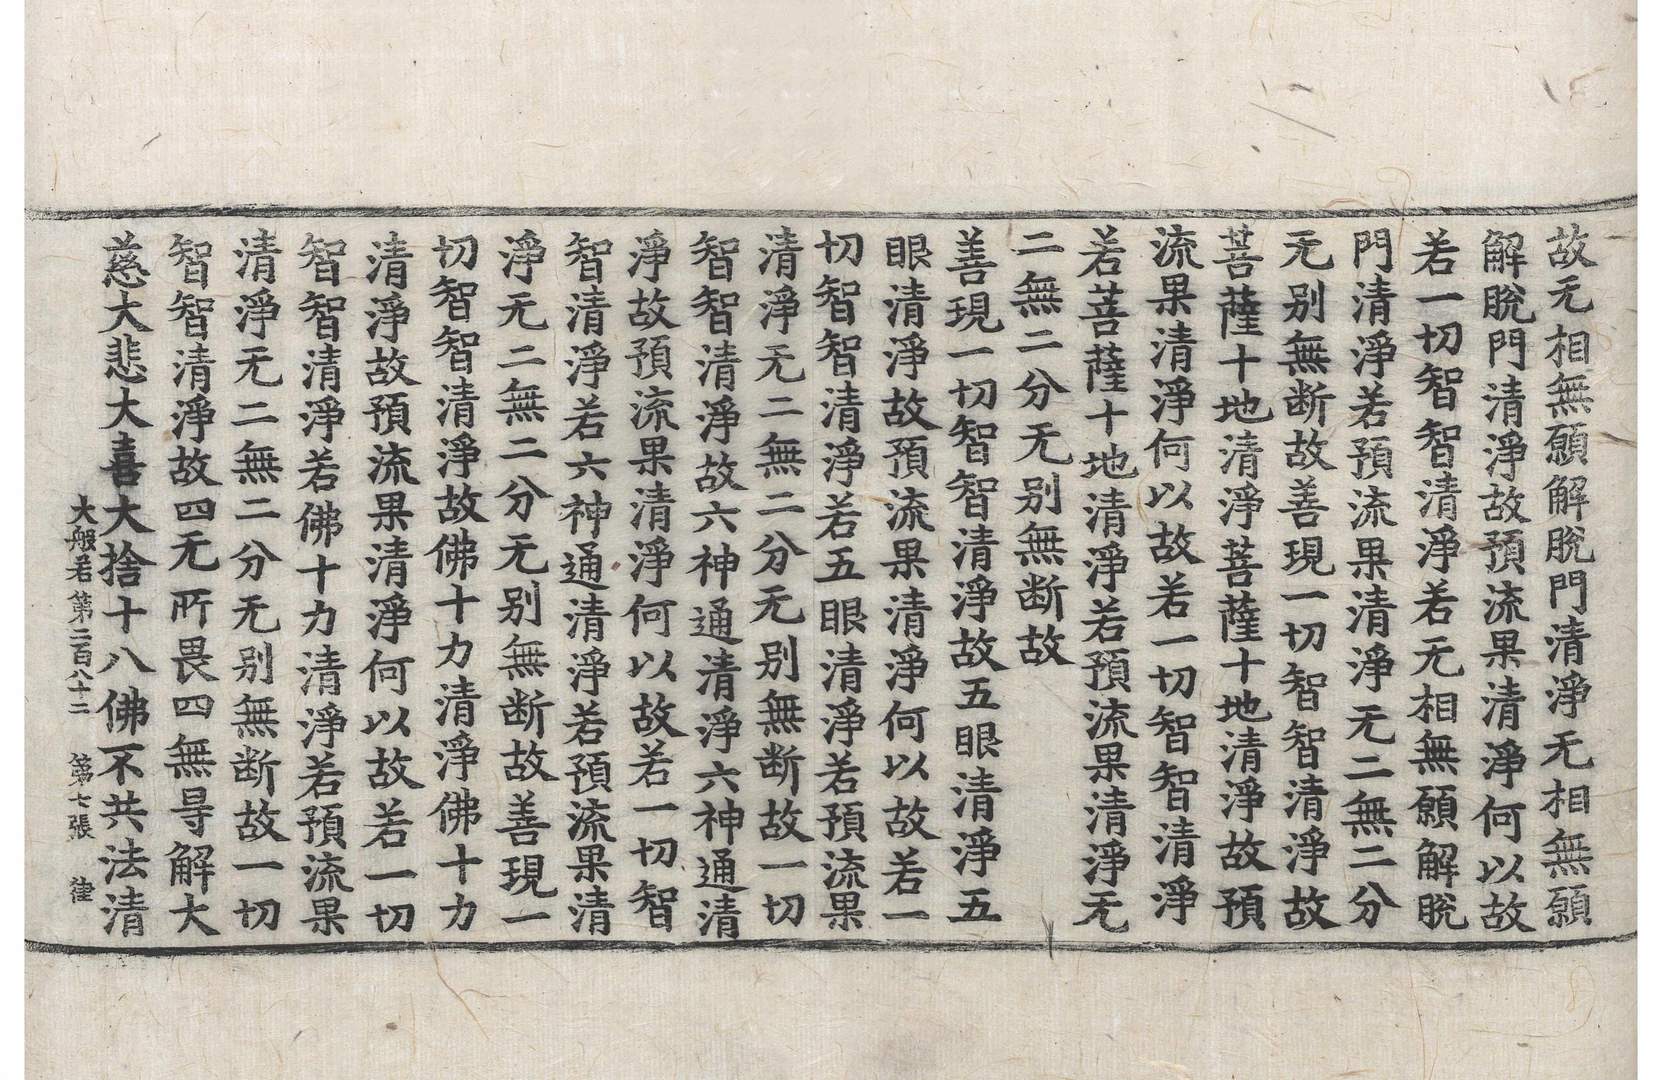 故无相無願解脫門清淨无相無願
解脫門清淨故預流果清淨何以故
若一切智智清淨若无相無願解脫
門清淨若預流果清淨无二無二分
无别無断故善現一切智智清淨故
菩薩十地清淨菩薩十地清淨故預
流果清淨何以故若一切智智清淨
若菩薩十地清淨若預流果清淨无
二無二分无别無断故
善現一切智智清淨故五眼清淨五
眼清淨故預流果清淨何以故若一
切智智清淨若五眼清淨若預流果
清淨无二無二分无别無断故一切
智智清淨故六神通清淨六神通清
淨故預流果清淨何以故若一切智
智清淨若六神通清淨若預流果清
淨无二無二分无别無断故善現一
切智智清淨故佛十力清淨佛十力
清淨故預流果清淨何以故若一切
智智清淨若佛十力清淨若預流果
清淨无二無二分无别無断故一切
智智清淨故四无所畏四無㝵解大
慈大悲大喜大捨十八佛不共法清
大般若第二百八十二 第七張